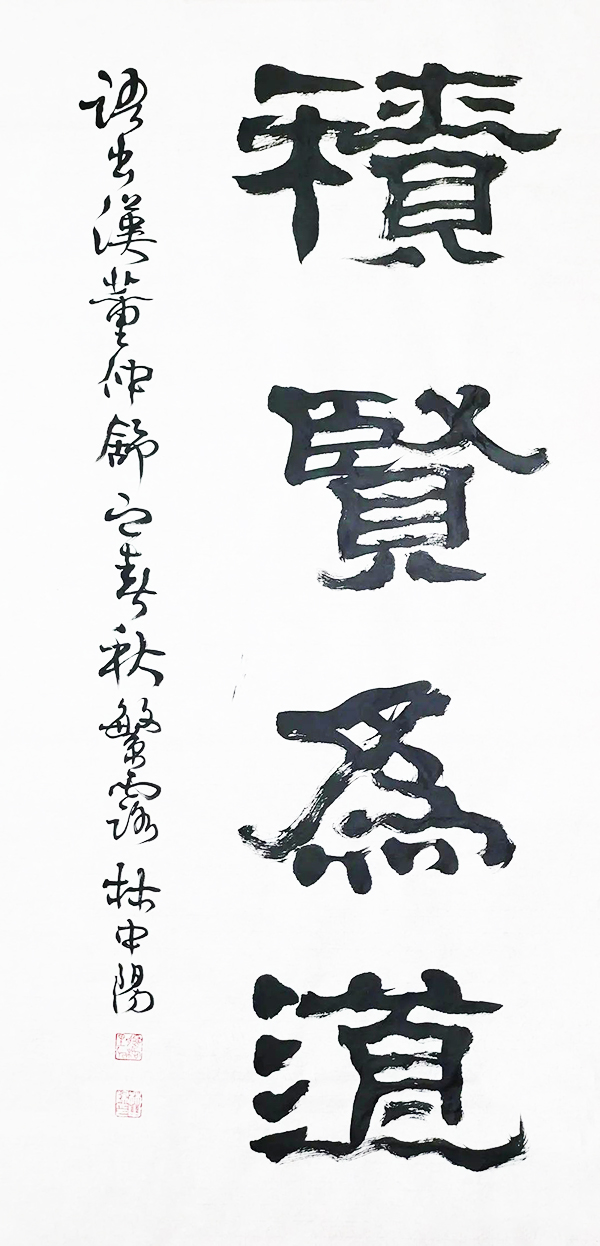 積賢為道
語出漢董仲舒之春秋繁露 林中陽